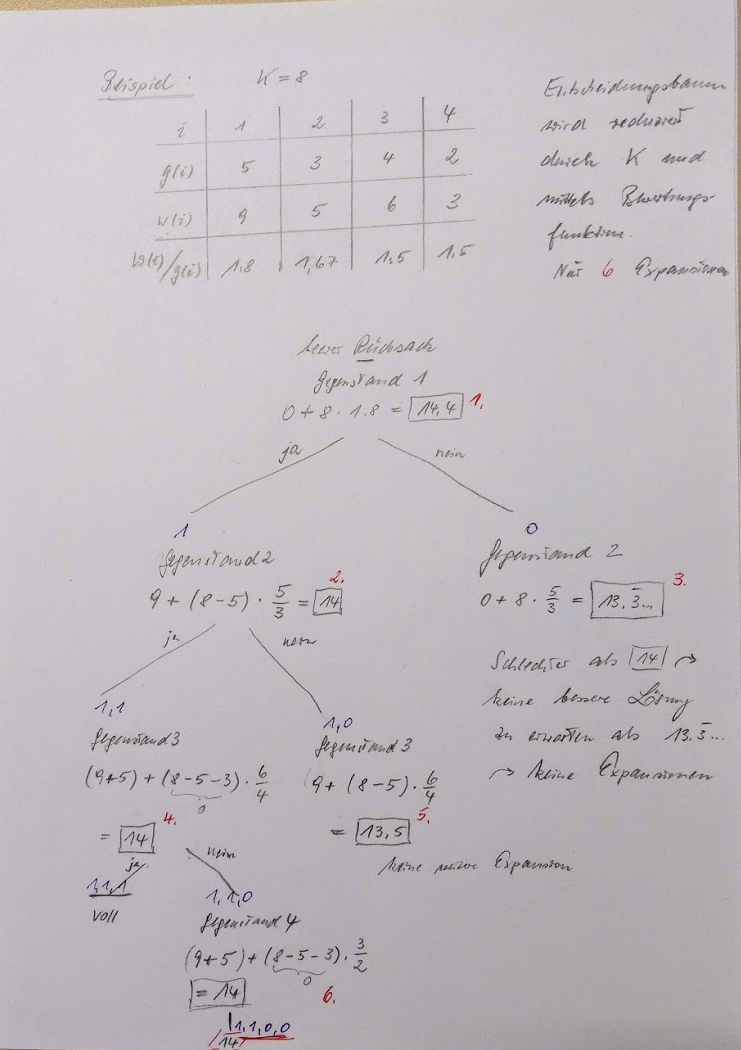 Beispiel : K = 8
i 1 2 3 4
g(i) 5 3 4 2
w(i) 9 5 6 3
w(i)/g(i) 1.8 1,67 1.5 1.5
Entscheidungsbaum
wird reduziert
durch K und
mittels Bewertungs-
funktion.
Nur 6 Expansionen
leerer Rucksack
Gegenstand 1
0 + 8 · 1.8 = 14,4 1.
ja nein
1 0
Gegenstand 2 Gegenstand 2
9 + (8-5) · 5/3 = 14 2.
0 + 8 · 5/3 = 13.3̅... 3.
ja nein
Schlechter als 14 →
keine bessere Lösung
zu erwarten als 13.3̅...
→ keine Expansionen
1,1 1,0
Gegenstand 3 Gegenstand 3
(9+5) + (8-5-3) · 6/4 9 + (8-5) · 6/4
0
= 14 4. = 13,5 5.
ja nein
keine weitere Expansion
1,1,1 1,1,0
voll Gegenstand 4
(9+5) + (8-5-3) · 3/2
0
= 14 6.
1,1,0,0
14